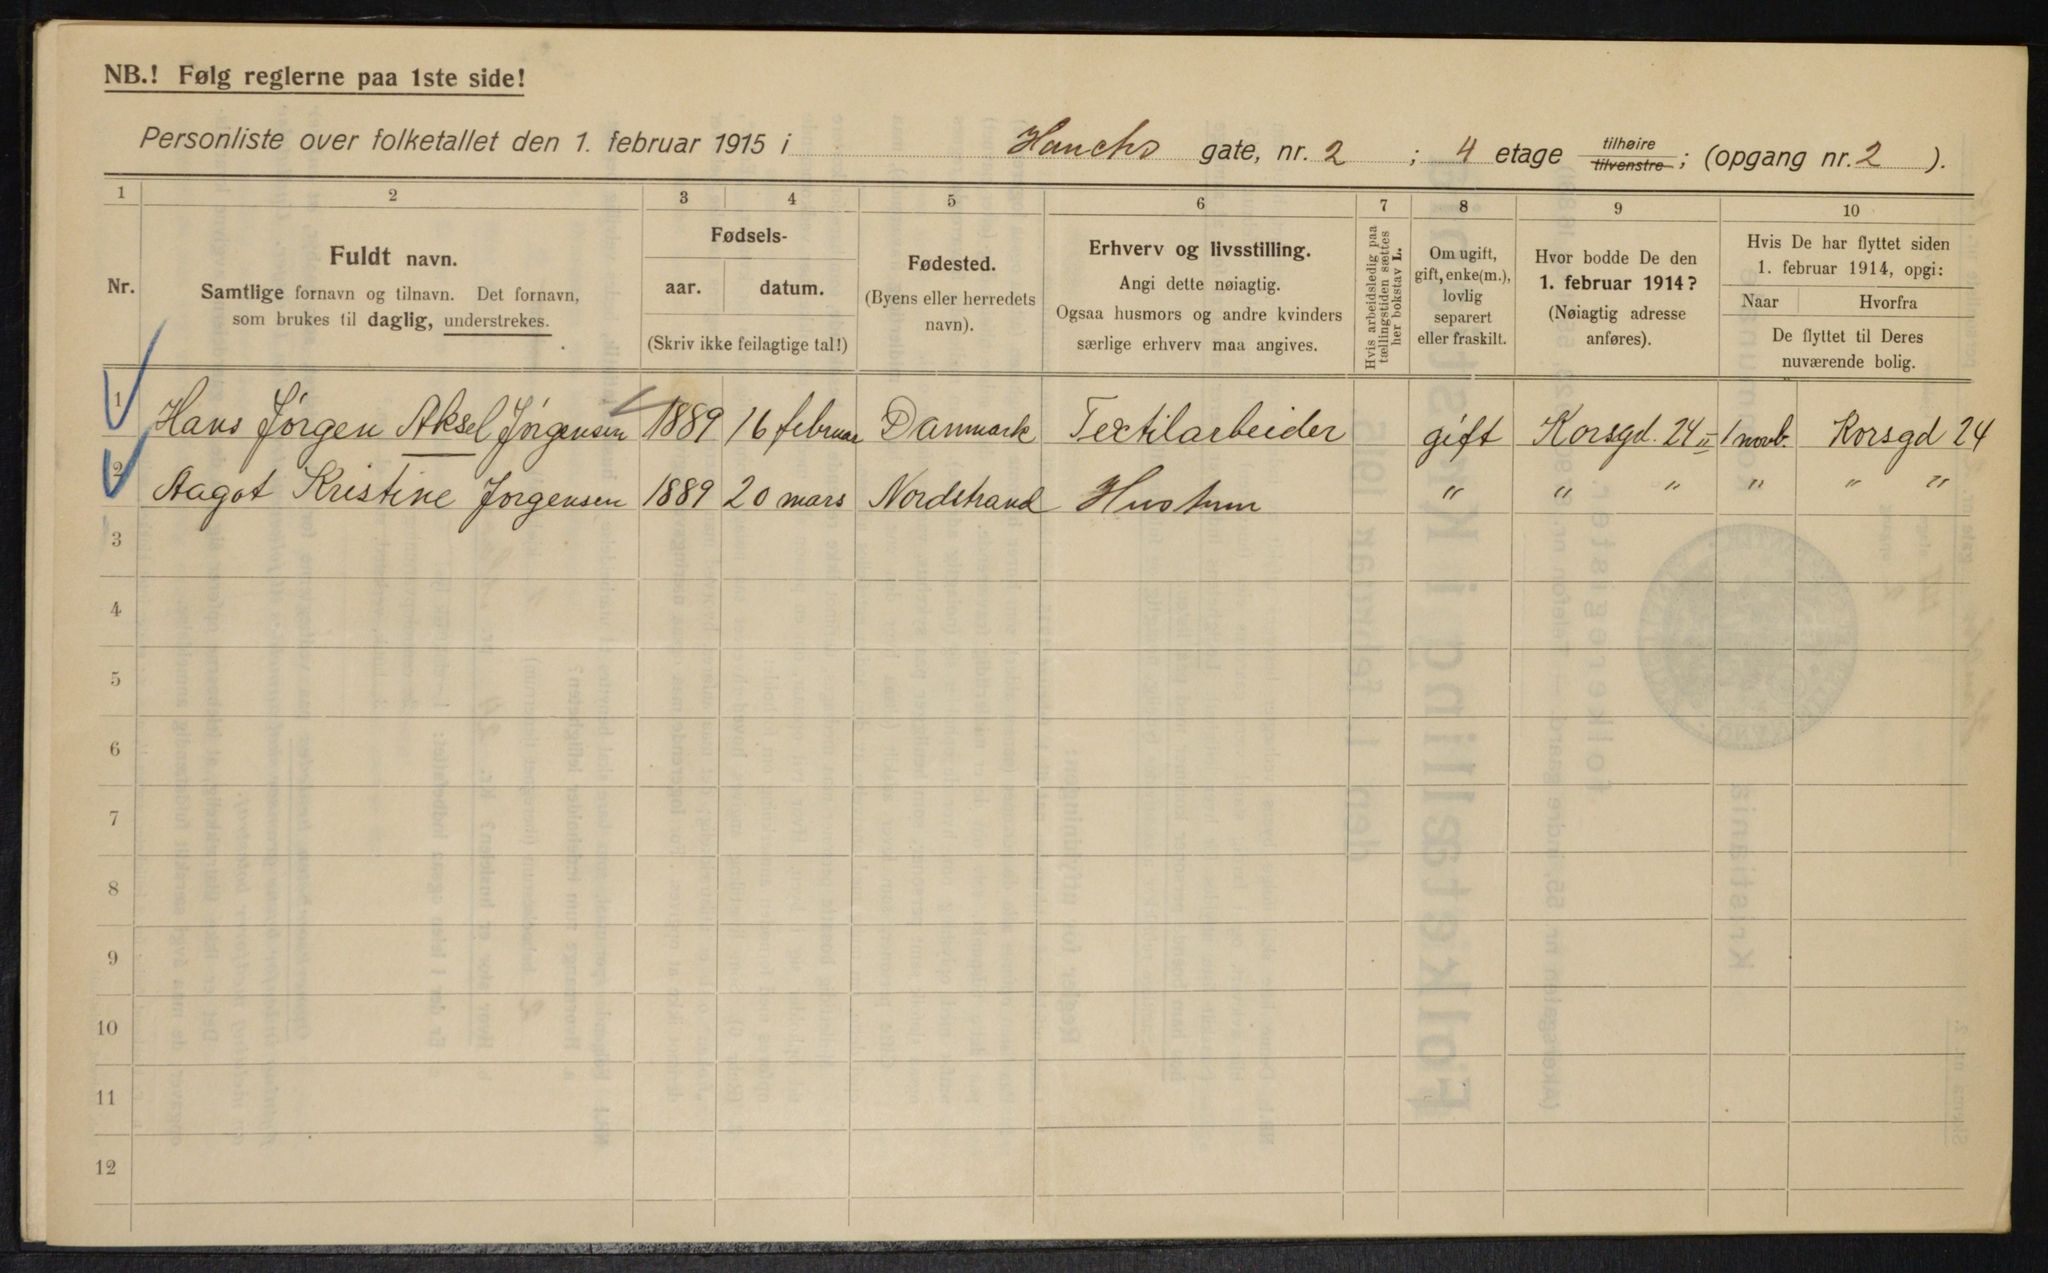 NB.! Følg reglerne paa 1ste side!
Personliste over folketallet den 1. februar 1915 i Hauchs gate, nr. 2 ; 4 etage tilhøire tilvenstre ; (opgang nr. 2 ).
1 2 3 4 5 6 7 8 9 10
Nr.
Fuldt navn.
Samtlige fornavn og tilnavn. Det fornavn,
som brukes til daglig, understrekes.
Fødsels-
aar. datum.
(Skriv ikke feilagtige tal!)
Fødested.
(Byens eller herredets
navn).
Erhverv og livsstilling.
Angi dette nøiagtig.
Ogsaa husmors og andre kvinders
særlige erhverv maa angives.
Hvis arbeidsledig paa
tællingstiden sættes
her bokstav L.
Om ugift,
gift, enke(m.),
lovlig
separert
eller fraskilt.
Hvor bodde De den
1. februar 1914?
(Nøiagtig adresse
anføres).
Hvis De har flyttet siden
1. februar 1914, opgi:
Naar Hvorfra
De flyttet til Deres
nuværende bolig.
1 Hans Jørgen Aksel Jørgensen 1889 16 februar Danmark Textilarbeider gift Korsgd. 24 II 1 novb. Korsgd 24
2 Aagot Kristine Jørgensen 1889 20 mars Nordstrand Hustru " " " " " "
3
4
5
6
7
8
9
10
11
12